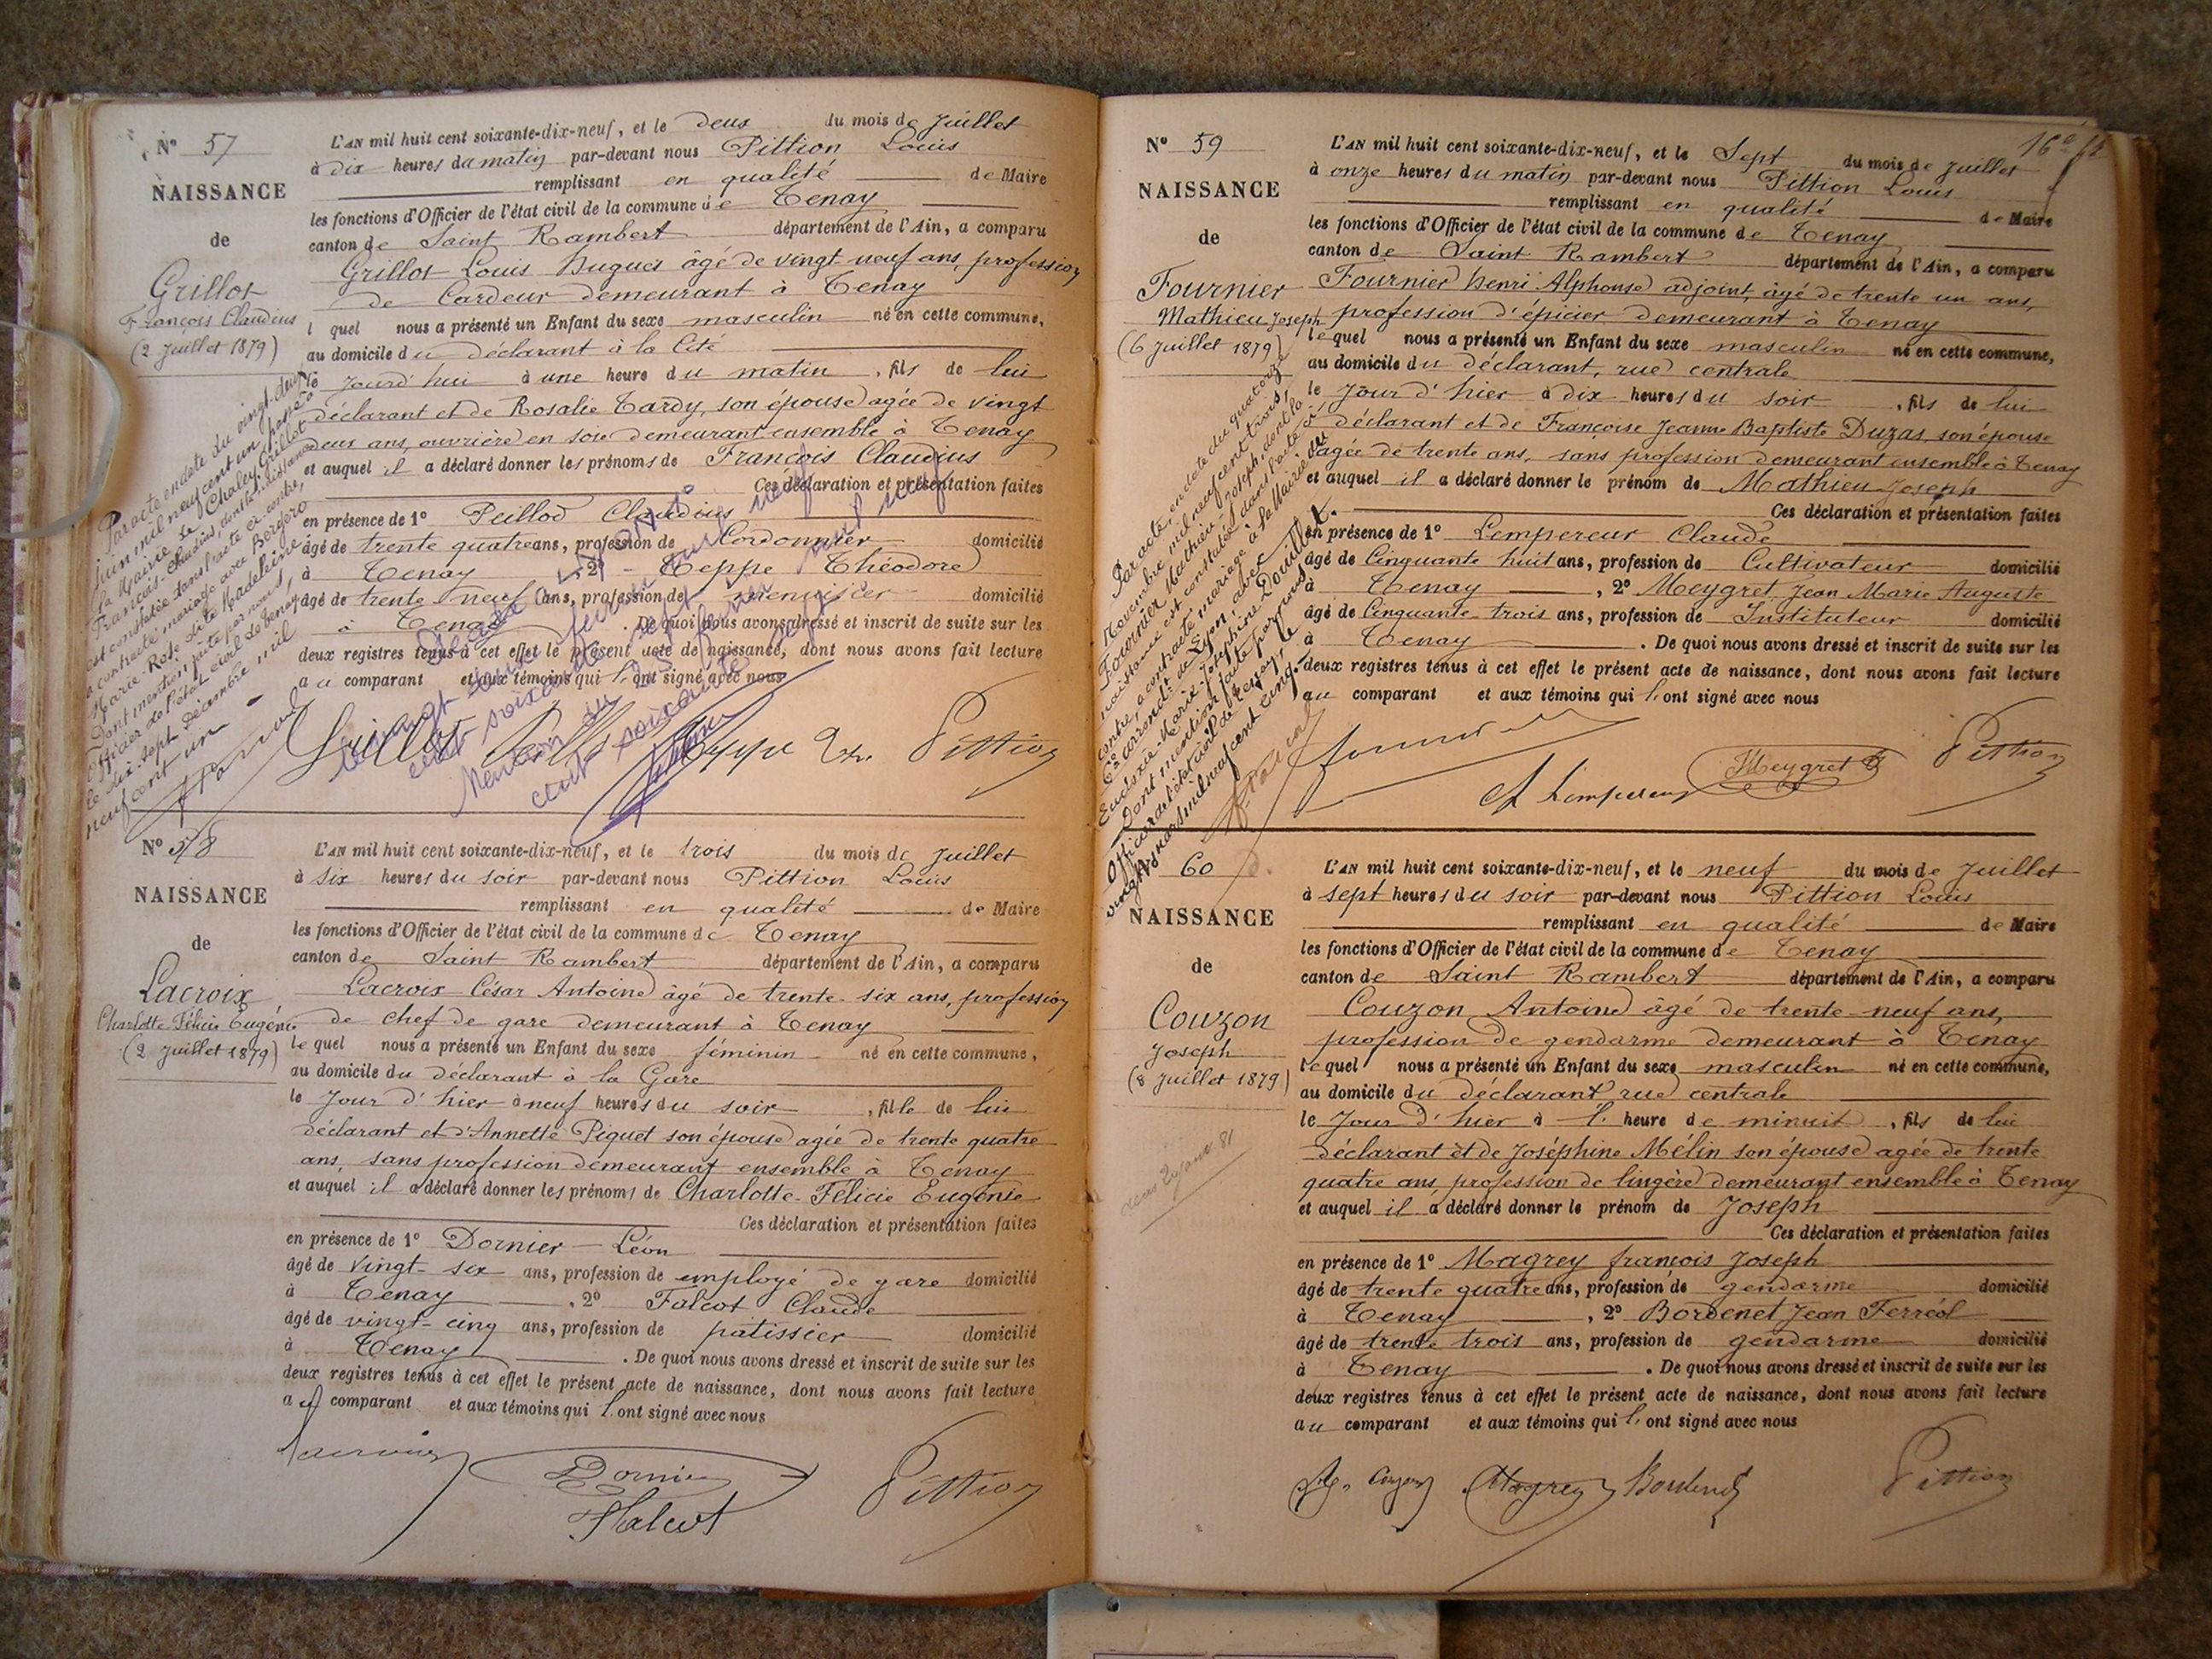 N° 57
NAISSANCE
de
Grillot
François Claudius
(2 Juillet 1879)
L'AN mil huit cent soixante-dix-neuf, et le deux du mois de Juillet
à dix heures du matin par-devant nous Pittion Louis
remplissant en qualité de Maire
les fonctions d'Officier de l'état civil de la commune de Tenay
canton de Saint Rambert département de l'Ain, a comparu
Grillot Louis Hugues âgé de vingt neuf ans, profession
de Cardeur demeurant à Tenay
l quel nous a présenté un Enfant du sexe masculin né en cette commune,
au domicile du déclarant à la Cité
le Jourd'hui à une heure du matin, fils de lui
déclarant et de Rosalie Tardy, son épouse agée de vingt
deux ans, ouvrière en soie demeurant ensemble à Tenay
et auquel il a déclaré donner les prénoms de François Claudius
Ces déclaration et présentation faites
en présence de 1° Peillod Claudius
âgé de trente quatre ans, profession de Cordonnier domicilié
à Tenay, 2° Teppe Théodore
âgé de trente neuf ans, profession de menuisier domicilié
à Tenay. De quoi nous avons dressé et inscrit de suite sur les
deux registres tenus à cet effet le présent acte de naissance, dont nous avons fait lecture
au comparant et aux témoins qui l'ont signé avec nous
Grillot Teppe Pittion
Par acte en date du vingt-deux
juin mil neuf cent un, passé à
la Mairie de Chaley, Grillot
François-Claudius, dont la naissance
est constatée dans l'acte ci-contre,
a contracté mariage avec Bergero
Marie-Rose dite Madeleine
Dont mention faite par nous,
Officier de l'état civil de Tenay
le dix-sept Décembre mil
neuf cent un
N° 58
NAISSANCE
de
Lacroix
Charlotte Félicie Eugénie
(2 Juillet 1879)
L'AN mil huit cent soixante-dix-neuf, et le trois du mois de Juillet
à six heures du soir par-devant nous Pittion Louis
remplissant en qualité de Maire
les fonctions d'Officier de l'état civil de la commune de Tenay
canton de Saint Rambert département de l'Ain, a comparu
Lacroix César Antoine âgé de trente-six ans, profession
de chef de gare demeurant à Tenay
lequel nous a présenté un Enfant du sexe féminin né en cette commune,
au domicile du déclarant à la Gare
le Jour d'hier à neuf heures du soir, fille de lui
déclarant et d'Annette Piquet son épouse agée de trente quatre
ans, sans profession demeurant ensemble à Tenay
et auquel il a déclaré donner les prénoms de Charlotte-Félicie Eugénie
Ces déclaration et présentation faites
en présence de 1° Dornier Léon
âgé de vingt-six ans, profession de employé de gare domicilié
à Tenay, 2° Falcot Claude
âgé de vingt-cinq ans, profession de pâtissier domicilié
à Tenay. De quoi nous avons dressé et inscrit de suite sur les
deux registres tenus à cet effet le présent acte de naissance, dont nous avons fait lecture
au comparant et aux témoins qui l'ont signé avec nous
Lacroix Dornier Pittion
Falcot
N° 59
NAISSANCE
de
Fournier
Mathieu Joseph
(6 Juillet 1879)
L'AN mil huit cent soixante-dix-neuf, et le Sept du mois de Juillet
à onze heures du matin par-devant nous Pittion Louis
remplissant en qualité de Maire
les fonctions d'Officier de l'état civil de la commune de Tenay
canton de Saint Rambert département de l'Ain, a comparu
Fournier Henri Alphonse adjoint, âgé de trente un ans,
profession d'épicier demeurant à Tenay
lequel nous a présenté un Enfant du sexe masculin né en cette commune,
au domicile du déclarant, rue centrale
le Jour d'hier à dix heures du soir, fils de lui
déclarant et de Françoise Jeanne Baptiste Duzas, son épouse
agée de trente ans, sans profession demeurant ensemble à Tenay
et auquel il a déclaré donner le prénom de Mathieu Joseph
Ces déclaration et présentation faites
en présence de 1° Lempereur Claude
âgé de Cinquante huit ans, profession de Cultivateur domicilié
à Tenay, 2° Meygret Jean Marie Auguste
âgé de Cinquante trois ans, profession de Instituteur domicilié
à Tenay. De quoi nous avons dressé et inscrit de suite sur les
deux registres tenus à cet effet le présent acte de naissance, dont nous avons fait lecture
au comparant et aux témoins qui l'ont signé avec nous
Meygret Pittion
Par acte en date du quatorze
Novembre mil neuf cent trois,
Fournier Mathieu-Joseph, dont la
naissance est constatée dans l'acte ci-
contre, a contracté mariage à la Mairie du
Arrondt de Lyon, avec
Marie-Joséphine
Dont mention faite par nous
Officier de l'état civil de Tenay, le
vingt mars mil neuf cent cinq.
60
NAISSANCE
de
Couzon
Joseph
(8 Juillet 1879)
L'AN mil huit cent soixante-dix-neuf, et le neuf du mois de Juillet
à sept heures du soir par-devant nous Pittion Louis
remplissant en qualité de Maire
les fonctions d'Officier de l'état civil de la commune de Tenay
canton de Saint Rambert département de l'Ain, a comparu
Couzon Antoine âgé de trente-neuf ans,
profession de gendarme demeurant à Tenay
lequel nous a présenté un Enfant du sexe masculin né en cette commune,
au domicile du déclarant rue centrale
le Jour d'hier à l'heure de minuit, fils de lui
déclarant et de Joséphine Mélin son épouse agée de trente
quatre ans, profession de lingère demeurant ensemble à Tenay
et auquel il a déclaré donner le prénom de Joseph
Ces déclaration et présentation faites
en présence de 1° Magrey françois Joseph
âgé de trente quatre ans, profession de gendarme domicilié
à Tenay, 2° Bordenet Jean Ferréol
âgé de trente trois ans, profession de gendarme domicilié
à Tenay. De quoi nous avons dressé et inscrit de suite sur les
deux registres tenus à cet effet le présent acte de naissance, dont nous avons fait lecture
au comparant et aux témoins qui l'ont signé avec nous
Couzon Magrey Bordenet Pittion